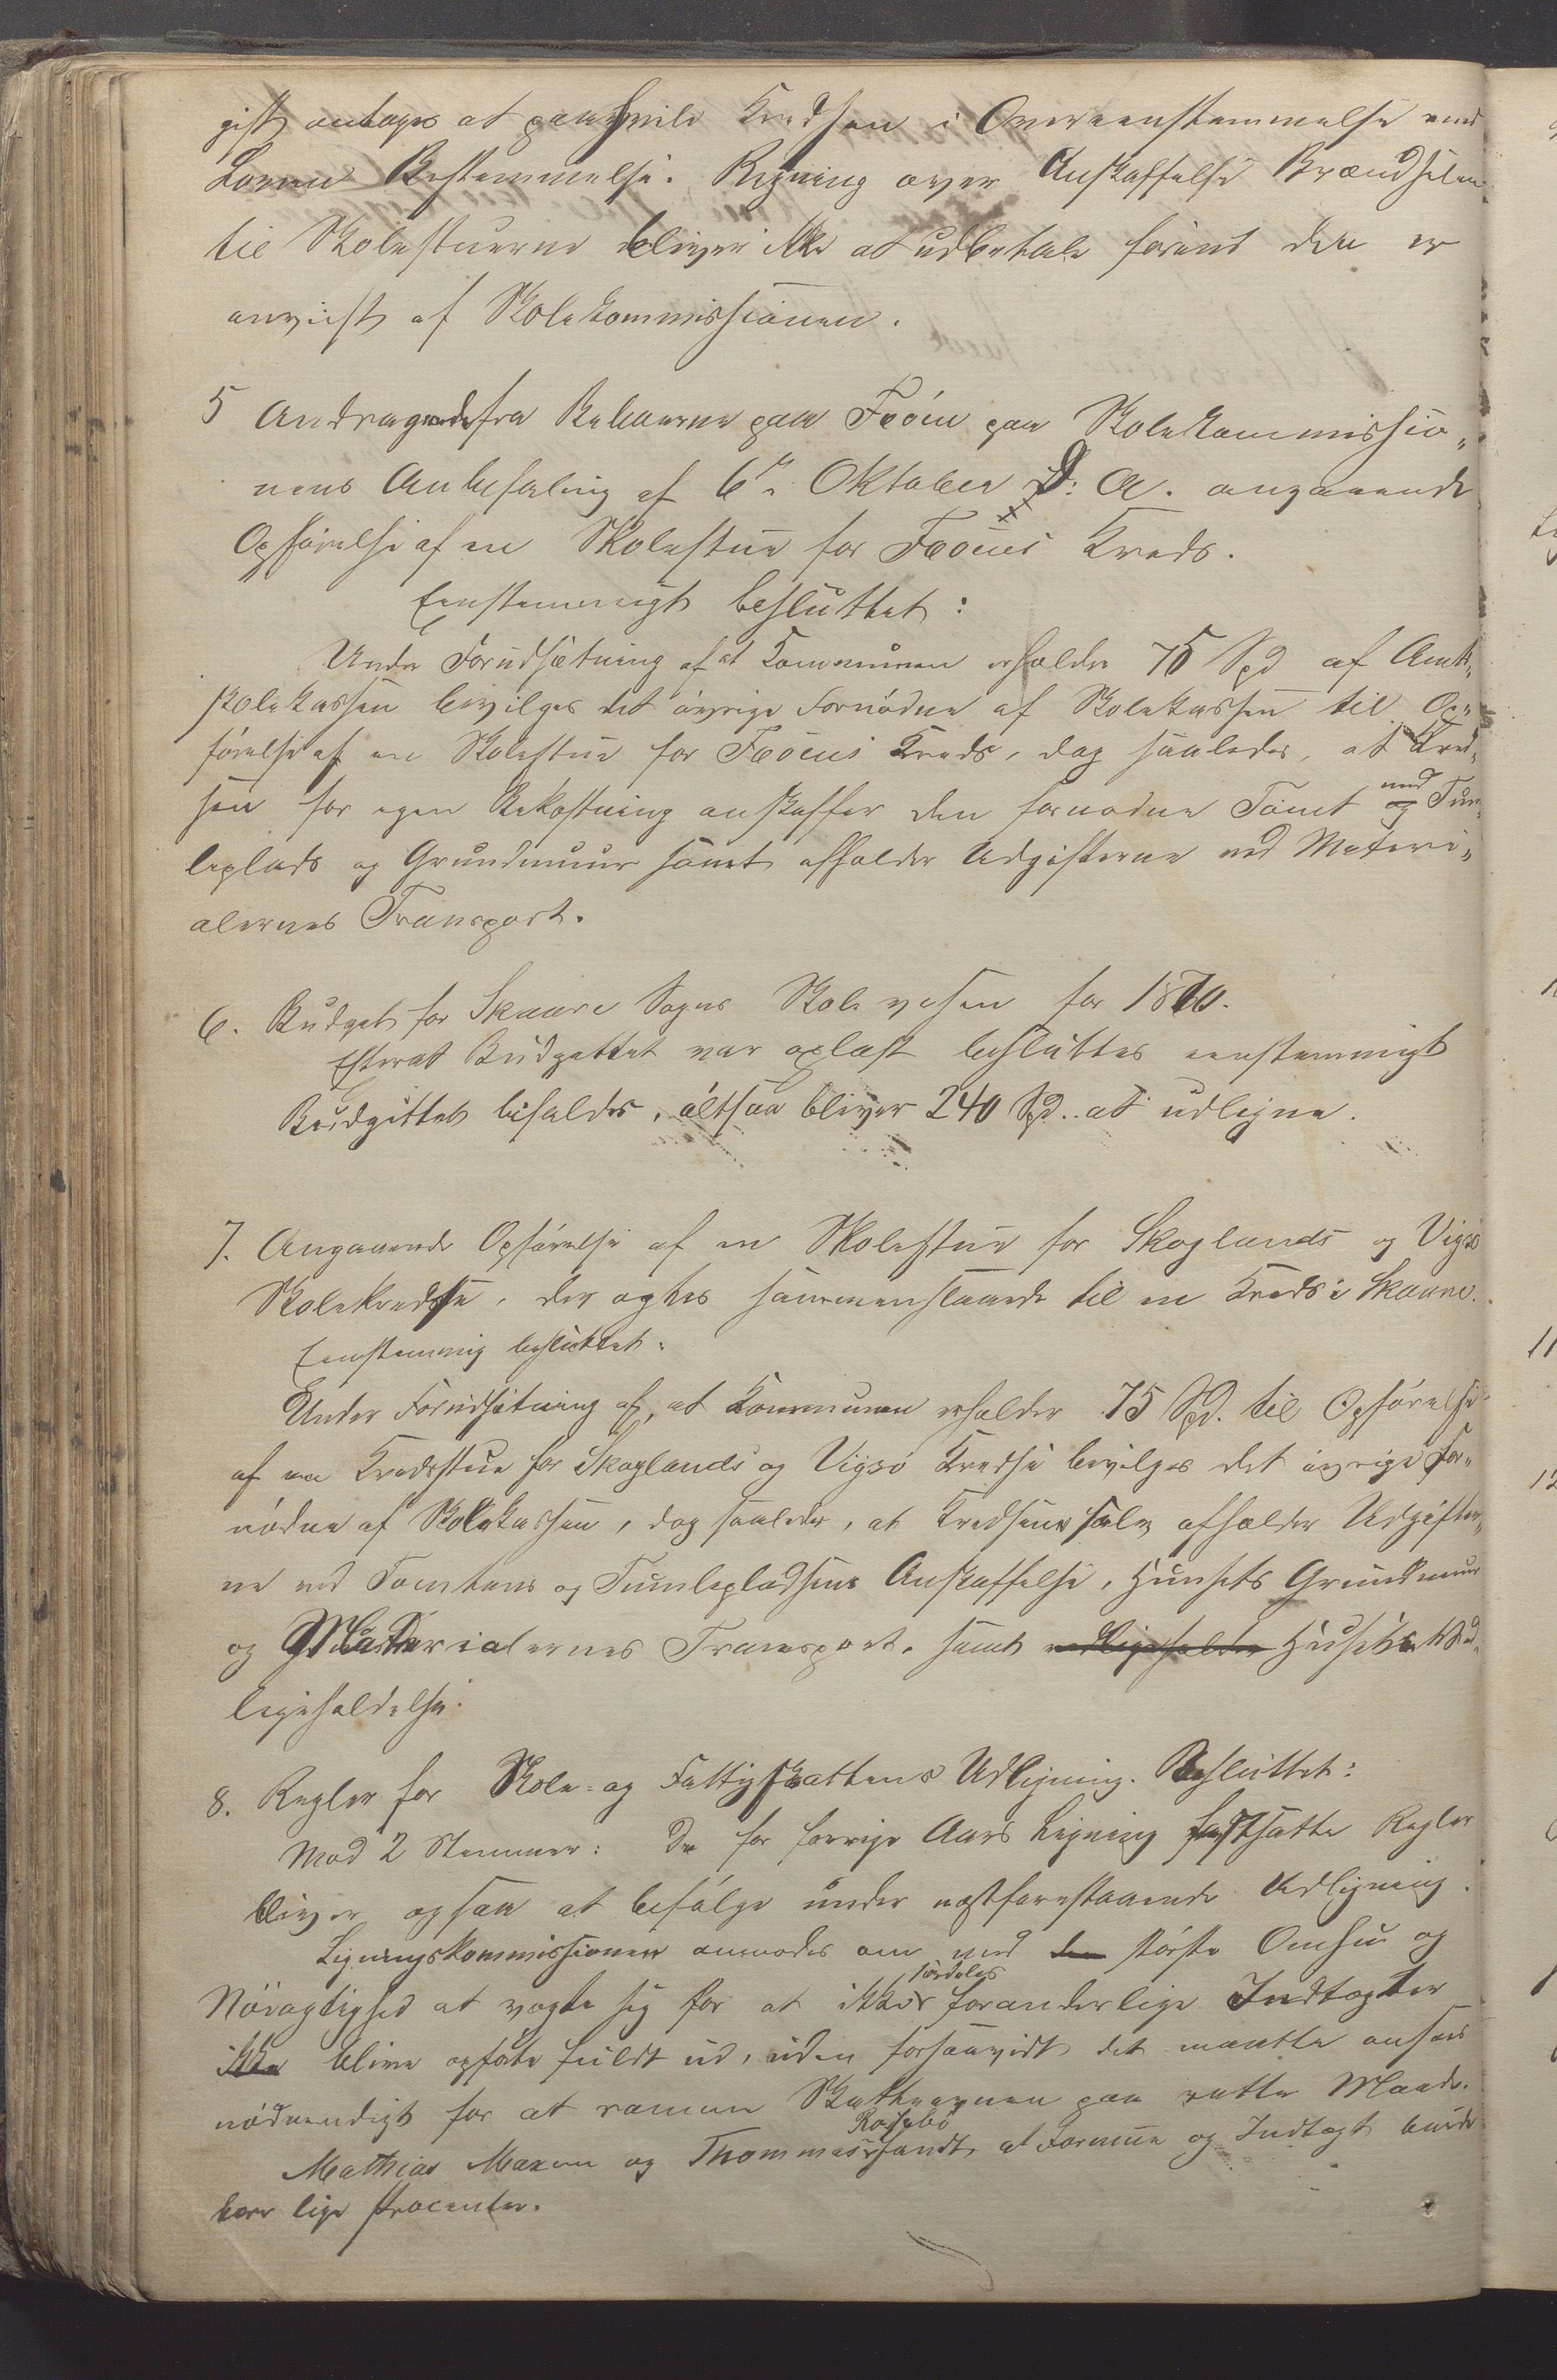 gift antages at paahvile Kredsen i Overeensstemmelse med
Lovens Bestemmelse. Regning over Anskaffelse Brændselen
til Skolestuerne bliver ikke at udbetale forend den er
anviist af Skolekommissionen.
5 Andragende fra Beboerne paa Feøen paa Skolekommissio„
nens Anbefaling af 6te Oktober d: A. angaaende
Opførelse af en Skolestue for Feøens Kreds.
Eenstemmigt besluttet:
Under Forudsætning af at Kommunen erholder 75 Spd af Amts„
skolekassen bevilges det øvrige Fornødne af Skolekassen til Op„
førelse af en Skolestue for Feøens Kreds, dog saaledes, at Kred„
sen for egen Bekostning anskaffer den fornødne Tomt med Tum„
leplads og Grundmuur samt afholder Udgifterne ved Materi„
alernes Transport.
6. Budget for Skaare Sogns Skolevesen for 1860.
Efterat Budgettet var oplæst besluttes eenstemmigt
Budgittet bifaldes, altsaa bliver 240 Spd. at udligne.
7. Angaaende Opførelse af en Skolestue for Skoglands og Vigsø
Skolekredse, der agtes sammenslaaede til en Kreds i Skaare.
Eenstemmig besluttet:
Under Forudsætning af, at Kommunen erholder 75 Spd. til Opførelse
af en Kredsstue for Skoglands og Vigsø Kredse bevilges det øvrige For„
nødne af Skolekassen, dog saaledes, at Kredsene selv afholder Udgifter„
ne ved Tomtens og Tumlepladsens Anskaffelse, Huusets Grundmuur
og Materialernes Transport, samt vedligeholde Husets Ved„
ligeholdelse.
8. Regler for Skole- og Fattigskattens Udligning. Besluttet:
Mod 2 Stemmer: De for forrige Aars Ligning fastsatte Regler
bliver ogsaa at befølge under næstforestaaende Udligning.
Ligningskommissionen anmodes om med den største Omhu og
Nøiagtighed at vogte sig for at ikke særdeles foranderlige Indtægter
ikke blive opførte fuldt ud, uden forsaavidt det maatte ansees
nødvendigt for at ramme Skatteevnen paa rette Maade.
Mathias Maxeen og Thommas Rossebø fandt, at Formue og Indtægt burde
bære lige Procenter.